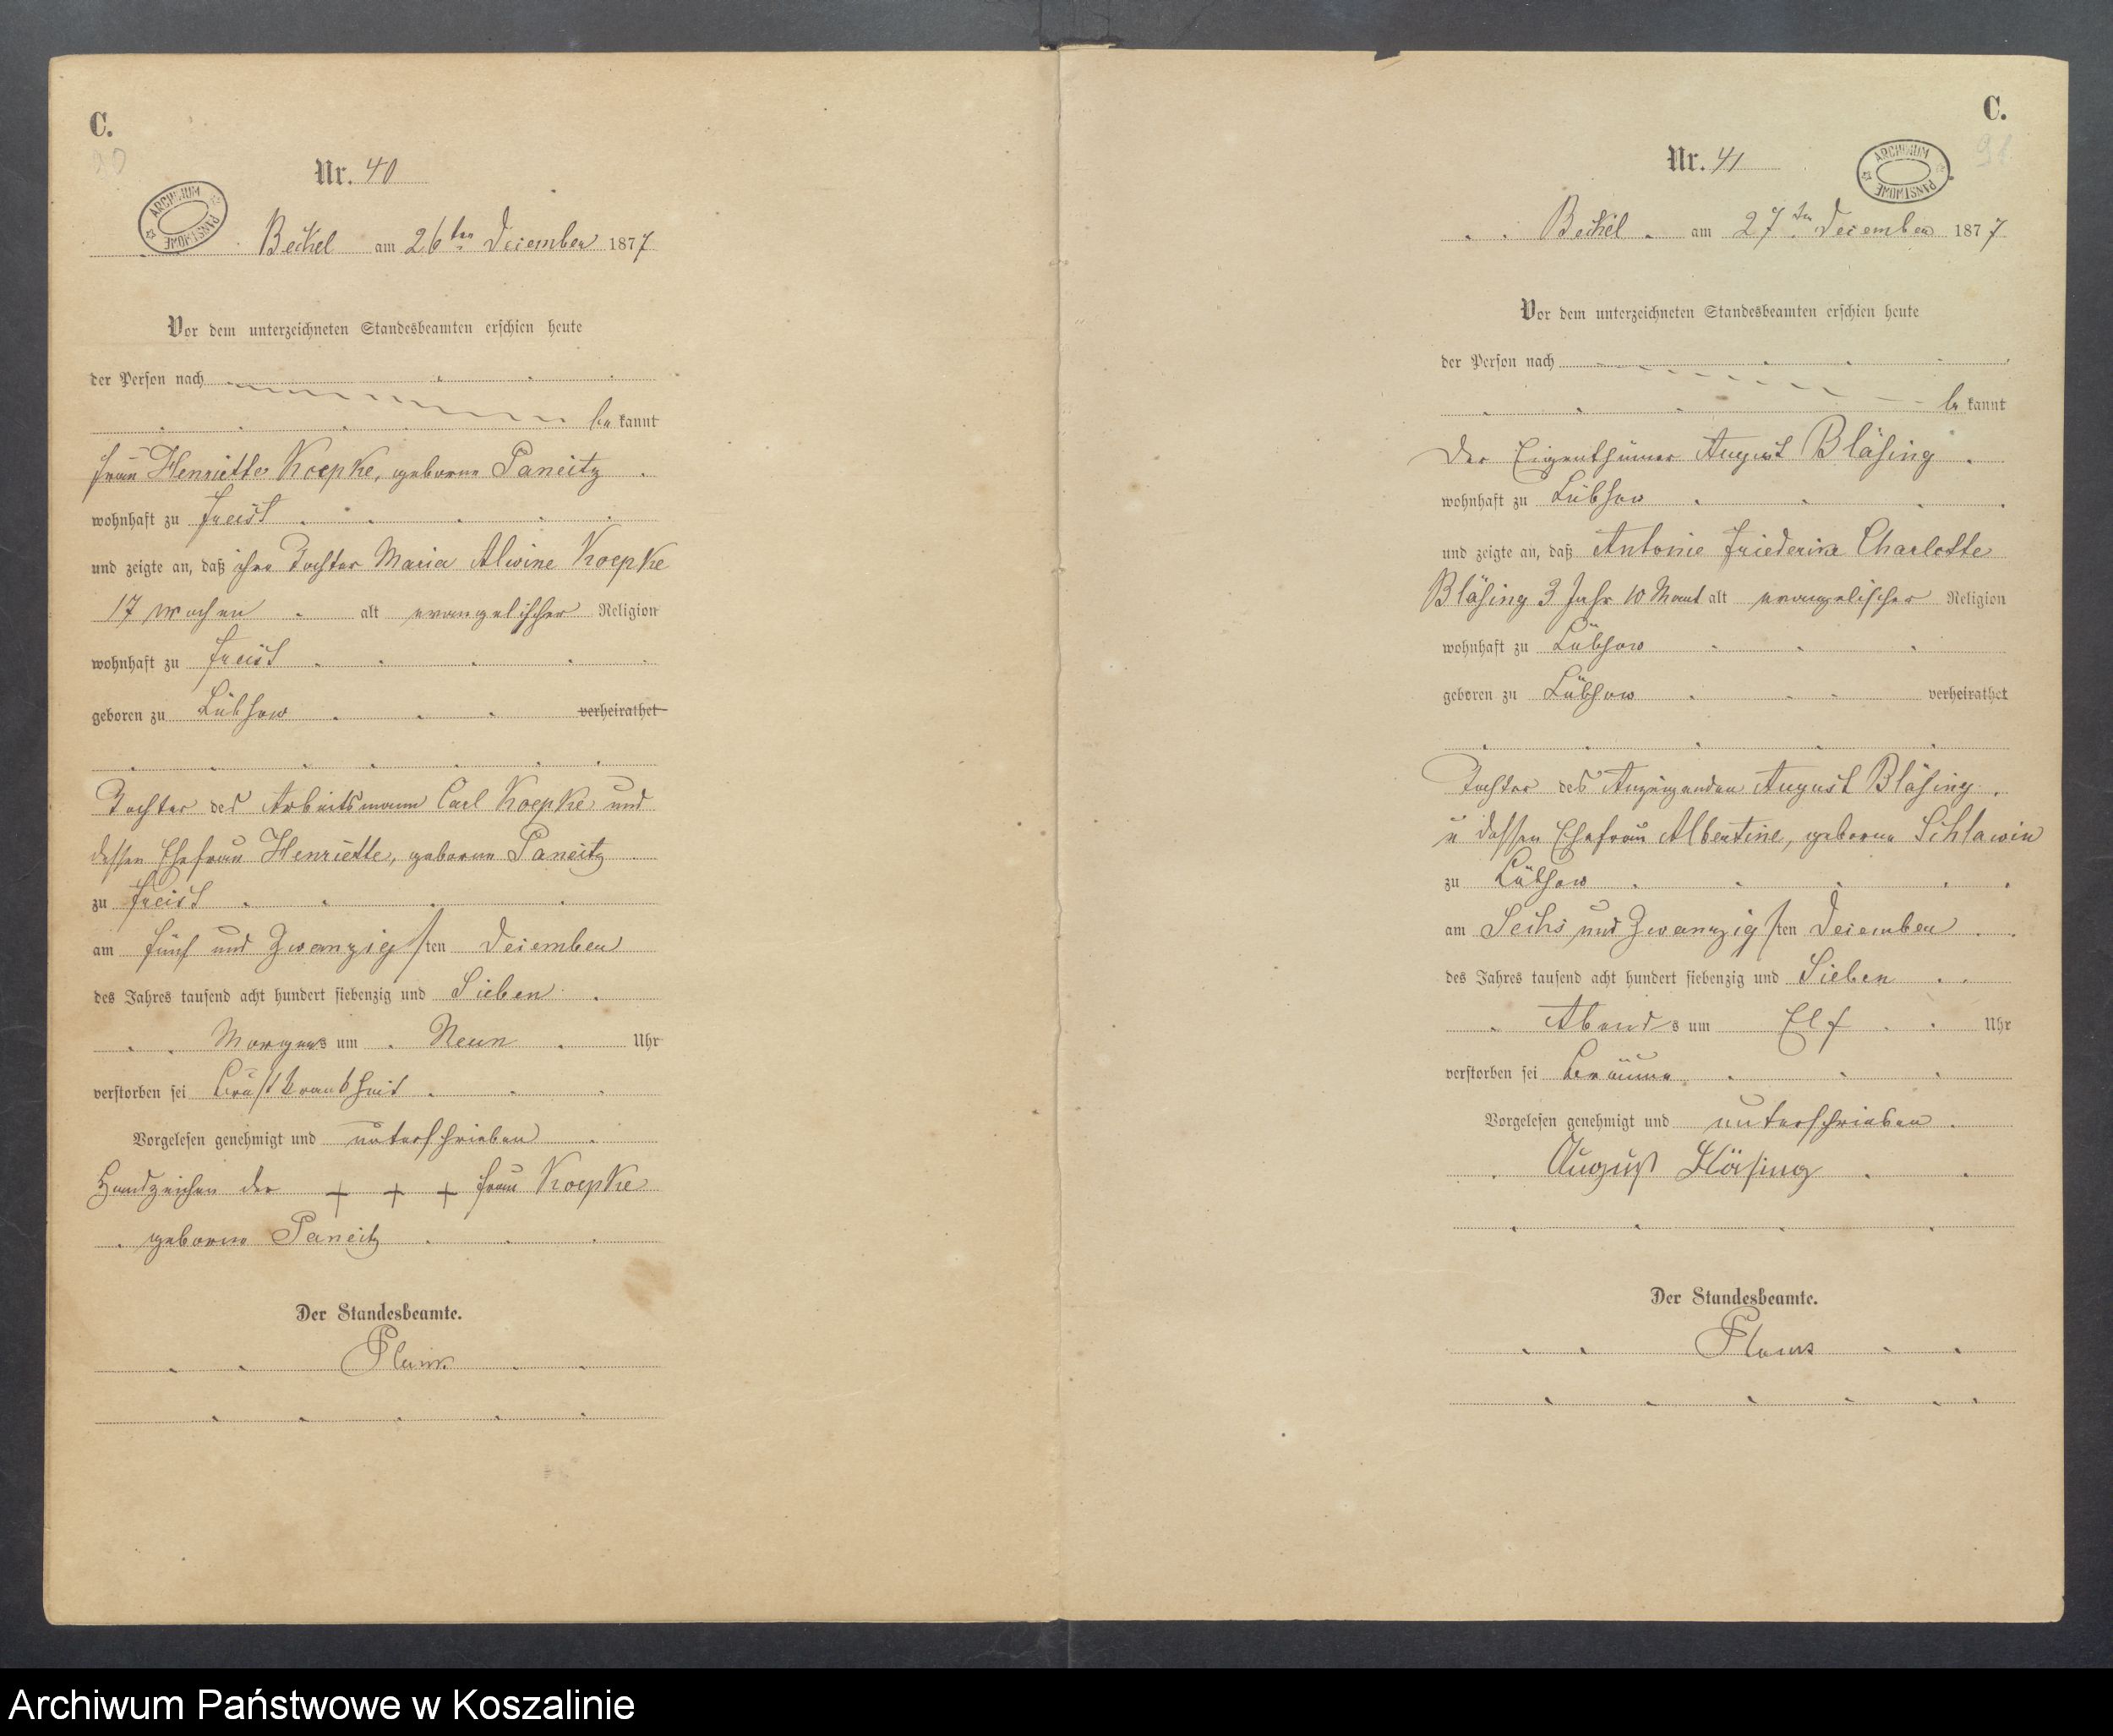 C.
90
Nr. 40
ARCHIWUM PAŃSTWOWE
Beckel am 26ten December 1877
Vor dem unterzeichneten Standesbeamten erschien heute
der Person nach
be kannt
Frau Henriette Koepke, geborne Paneitz
wohnhaft zu Freist
und zeigte an, daß ihre Tochter Maria Alwine Koepke
17 Wochen alt evangelischer Religion
wohnhaft zu Freist
geboren zu Lübsow verheirathet
Tochter des Arbeitsmann Carl Koepke und
dessen Ehefrau Henriette, geborne Paneitz
zu Freist
am fünf und Zwanzig sten December
des Jahres tausend acht hundert siebenzig und Sieben
Morgens um Neun Uhr
verstorben sei Brustkrankheit
Vorgelesen genehmigt und unterschrieben
Handzeichen der + + + Frau Koepke
geborne Paneitz
Der Standesbeamte.
C.
91
Nr. 41
ARCHIWUM PAŃSTWOWE
Beckel am 27ten December 1877
Vor dem unterzeichneten Standesbeamten erschien heute
der Person nach
be kannt
Der Eigenthümer August Bläsing
wohnhaft zu Lübsow
und zeigte an, daß Antonie Friederike Charlotte
Bläsing 3 Jahr 10 Monat alt evangelischer Religion
wohnhaft zu Lübsow
geboren zu Lübsow verheirathet
Tochter des Anzeigenden August Bläsing
u dessen Ehefrau Albertine, geborne Schlawin
zu Lübsow
am Sechs und Zwanzig sten December
des Jahres tausend acht hundert siebenzig und Sieben
Abends um Elf Uhr
verstorben sei Bräune
Vorgelesen genehmigt und unterschrieben
August Bläsing
Der Standesbeamte.
Archiwum Państwowe w Koszalinie